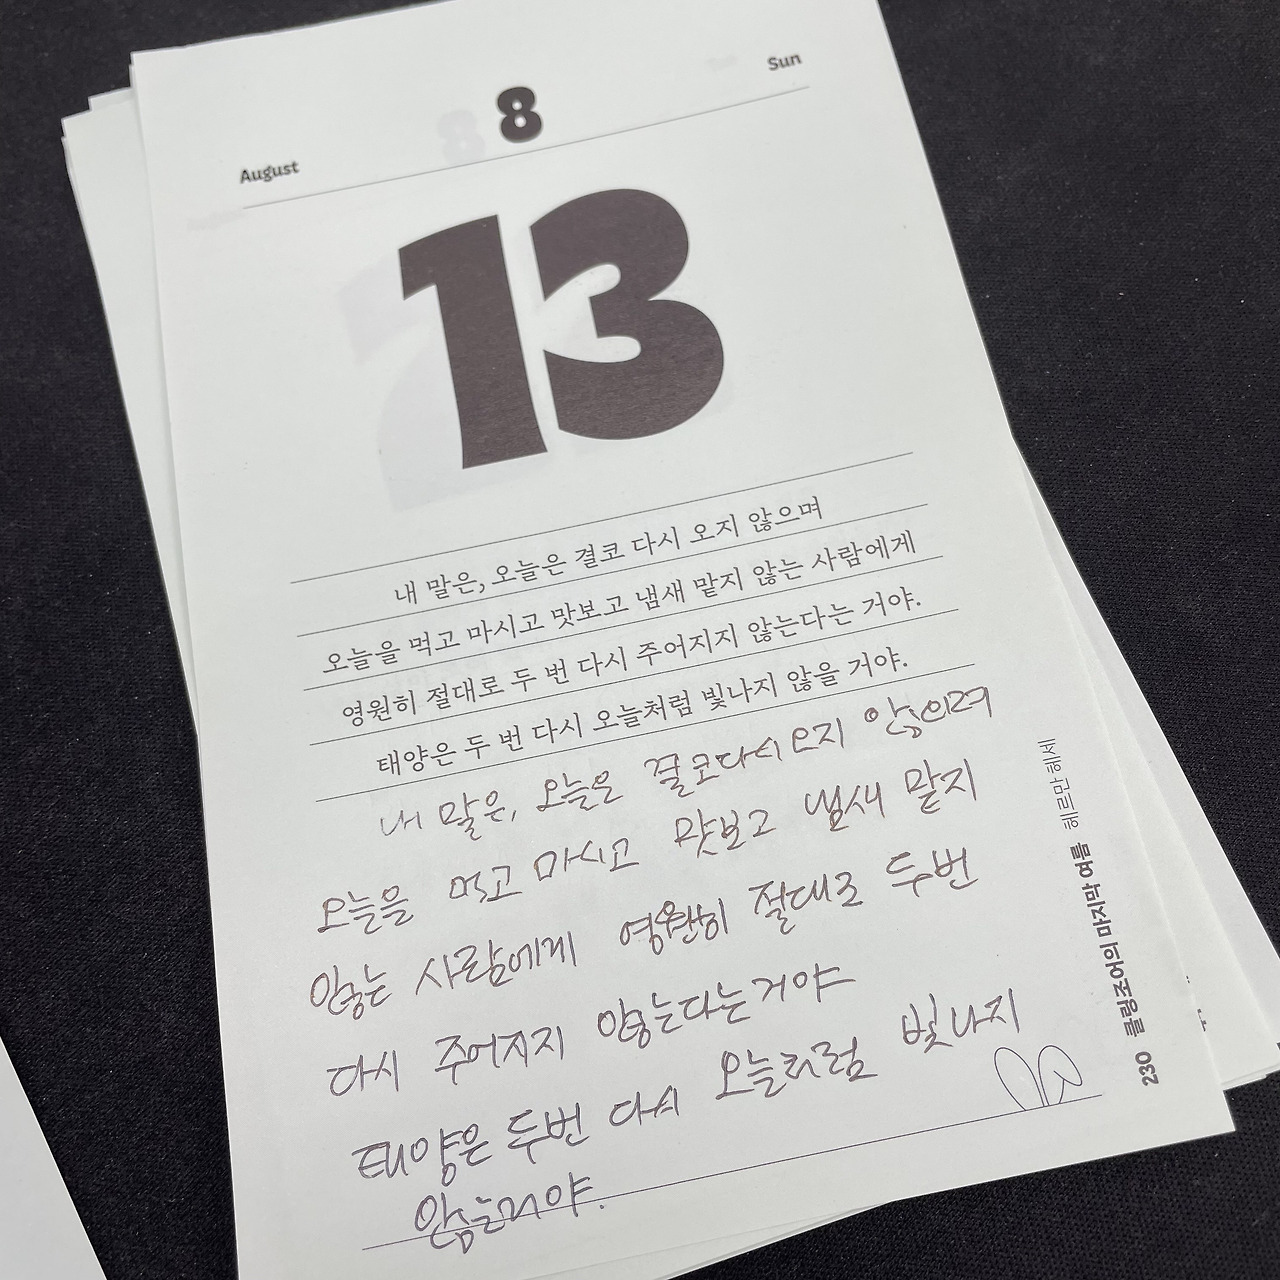 August 8 Sun
13
내 말은, 오늘은 결코 다시 오지 않으며
오늘을 먹고 마시고 맛보고 냄새 맡지 않는 사람에게
영원히 절대로 두 번 다시 주어지지 않는다는 거야.
태양은 두 번 다시 오늘처럼 빛나지 않을 거야.
내 말은, 오늘은 결코다시 오지 않으며
오늘을 먹고 마시고 맛보고 냄새 맡지
않는 사람에게 영원히 절대로 두번
다시 주어지지 않는다는거야
태양은 두번 다시 오늘처럼 빛나지
않는거야.
230 클링조어의 마지막 여름 헤르만 헤세